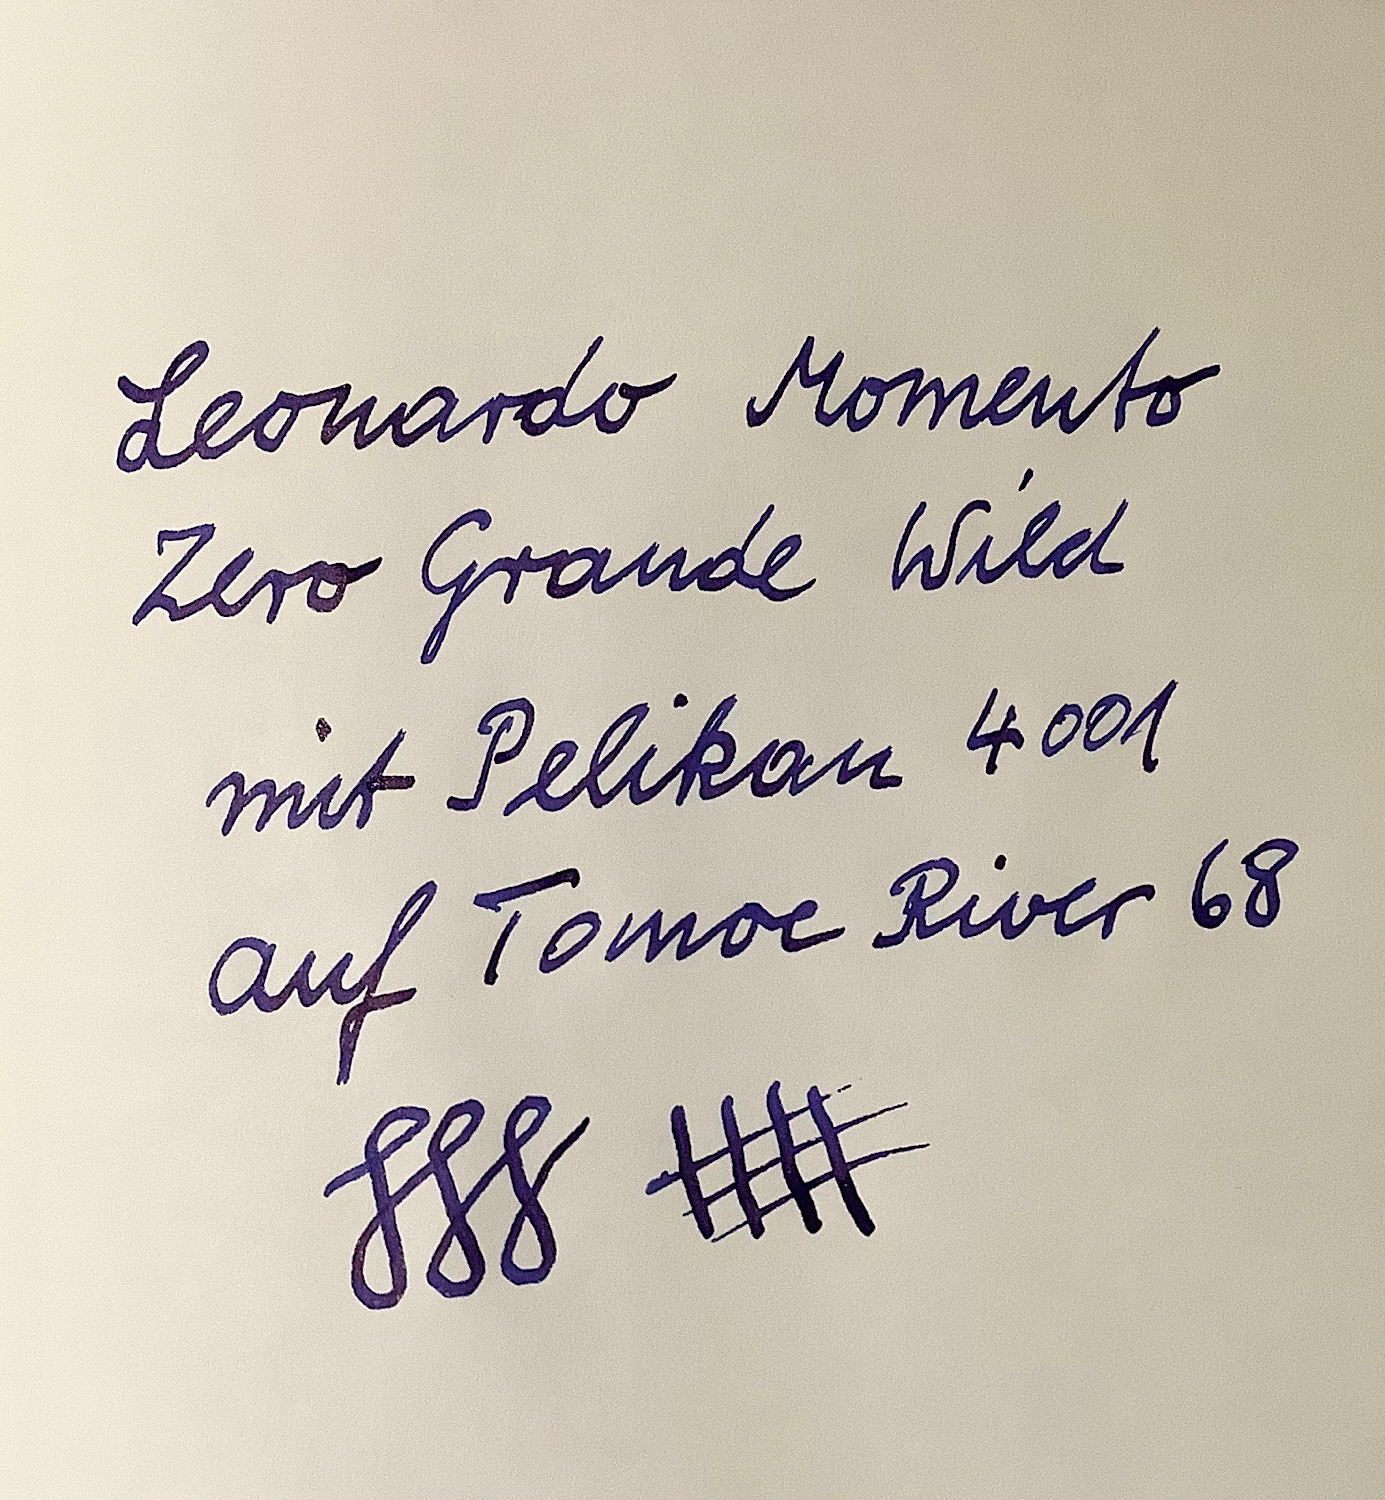 Leonardo Momento
Zero Grande Wild
mit Pelikan 4001
auf Tomoe River 68